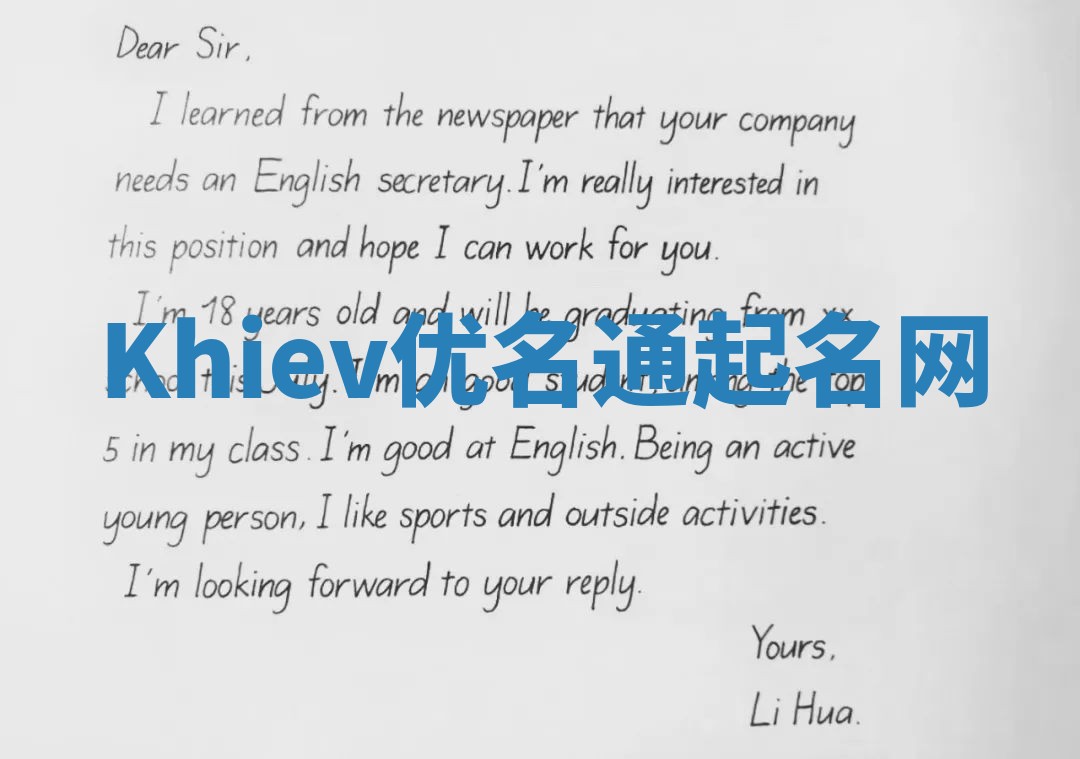 Dear Sir,
I learned from the newspaper that your company
needs an English secretary. I'm really interested in
this position and hope I can work for you.
I'm 18 years old and will be graduating from xx
Khiev优名通起名网
school this July. I'm a good student, among the top
5 in my class. I'm good at English. Being an active
young person, I like sports and outside activities.
I'm looking forward to your reply.
Yours,
Li Hua.